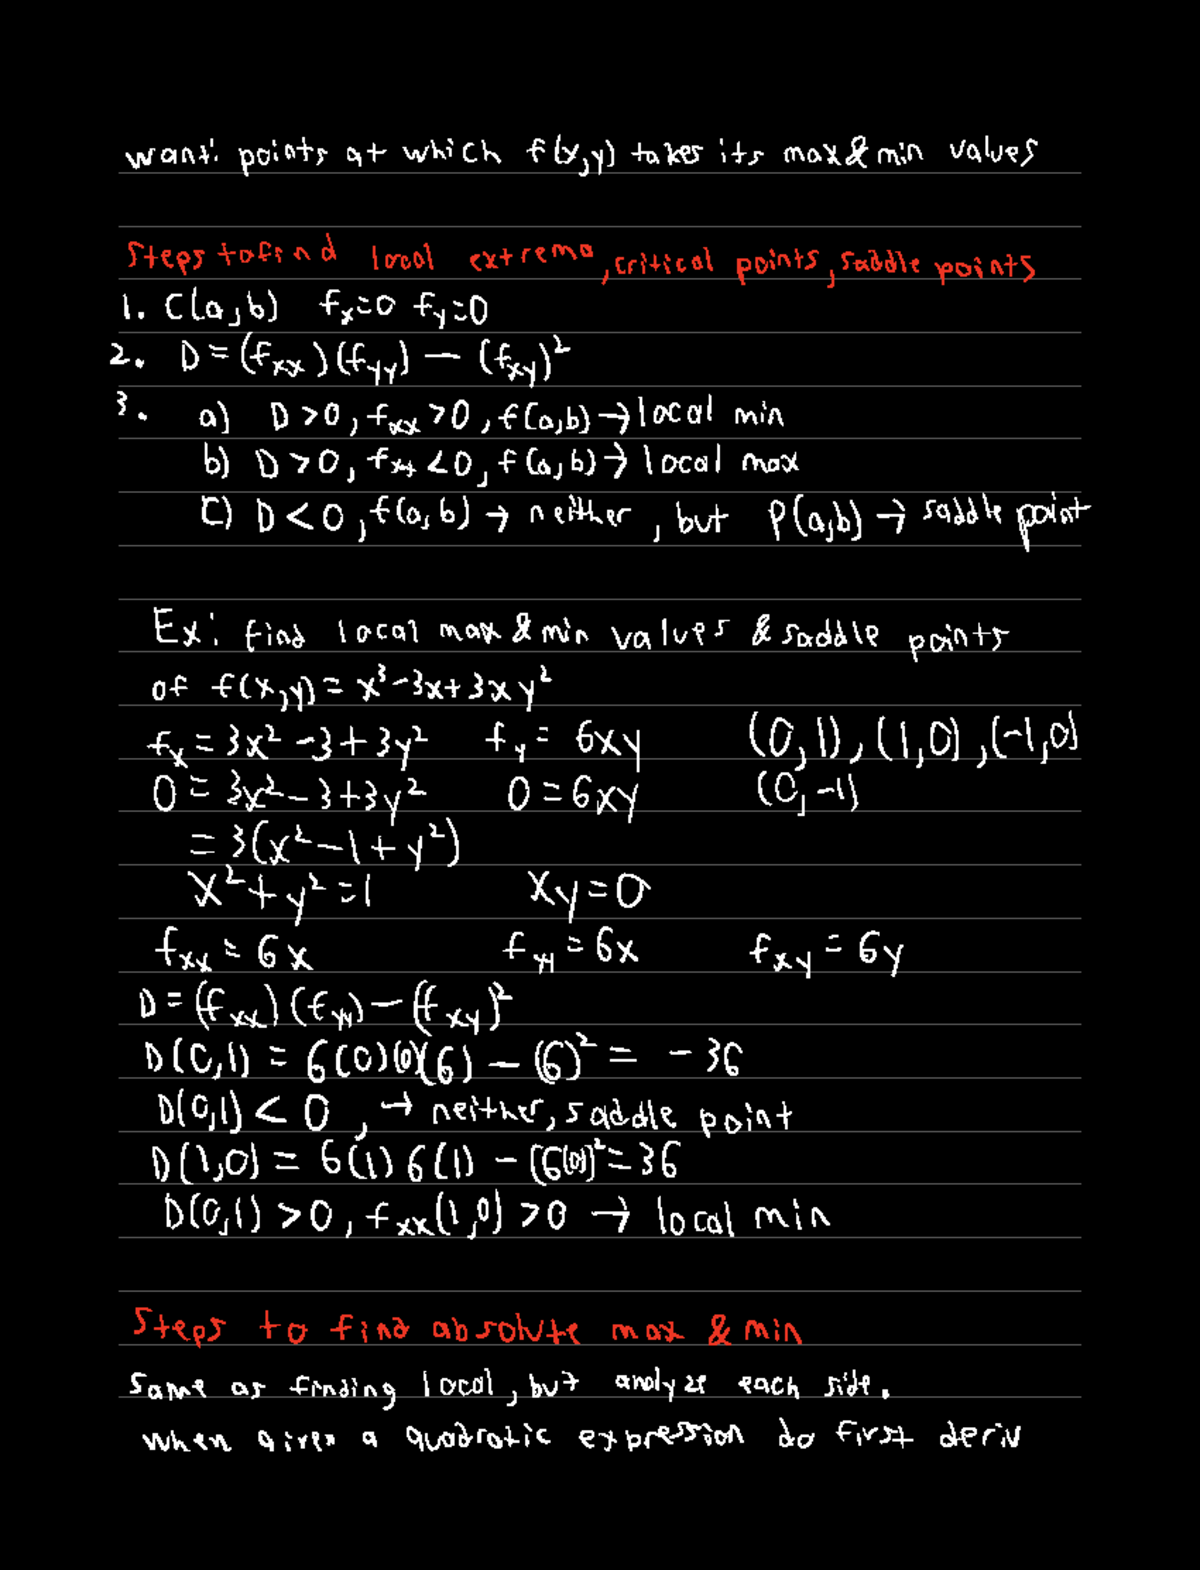 want: points at which f(x,y) takes its max & min values
Steps to find local extrema, critical points, saddle points
1. C(a,b) fx=0 fy=0
2. D = (fxx)(fyy) - (fxy)²
3. a) D>0, fxx>0, f(a,b)→local min
b) D>0, fxx<0, f(a,b)→ local max
C) D<0, f(a,b) → neither, but P(a,b) → saddle point
Ex: find local max & min values & saddle points
of f(x,y) = x³-3x+3xy²
fx = 3x²-3+3y² fy = 6xy (0,1), (1,0), (-1,0)
0 = 3x²-3+3y² 0=6xy (0,-1)
= 3(x²-1+y²)
x²+y²=1 xy=0
fxx = 6x fyy = 6x fxy = 6y
D = (fxx)(fyy) - (fxy)²
D(0,1) = 6(0)(0)(6) - (6)² = -36
D(0,1) < 0, → neither, saddle point
D(1,0) = 6(1)6(1) - (6(0))² = 36
D(0,1) >0, fxx(1,0) >0 → local min
Steps to find absolute max & min
Same as finding local, but analyze each side.
when given a quadratic expression do first deriv